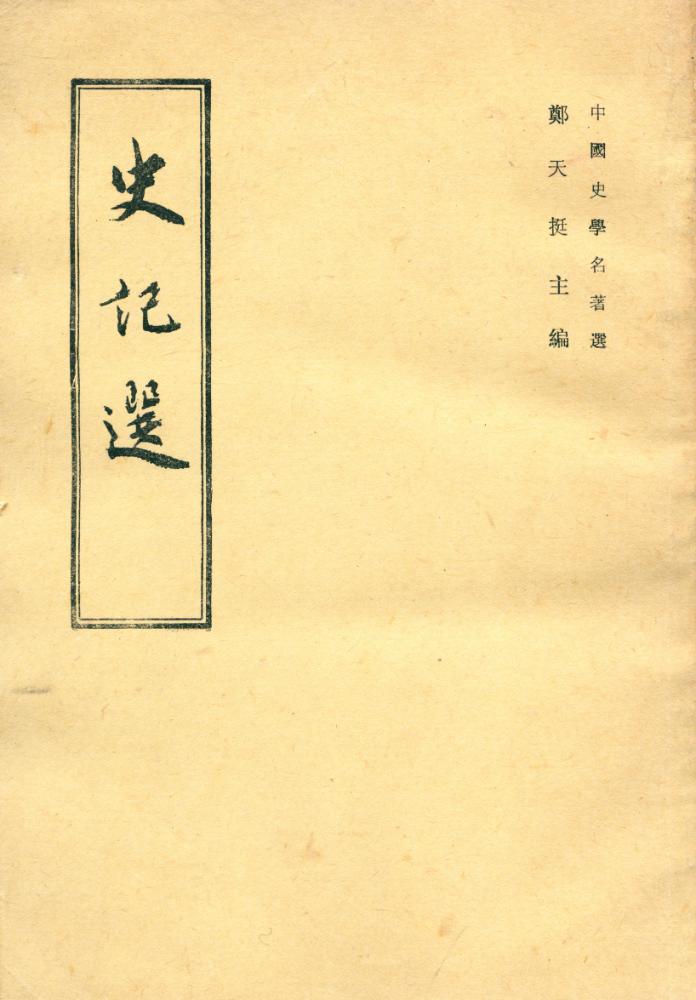 中國史學名著選
鄭天挺主編
史記選